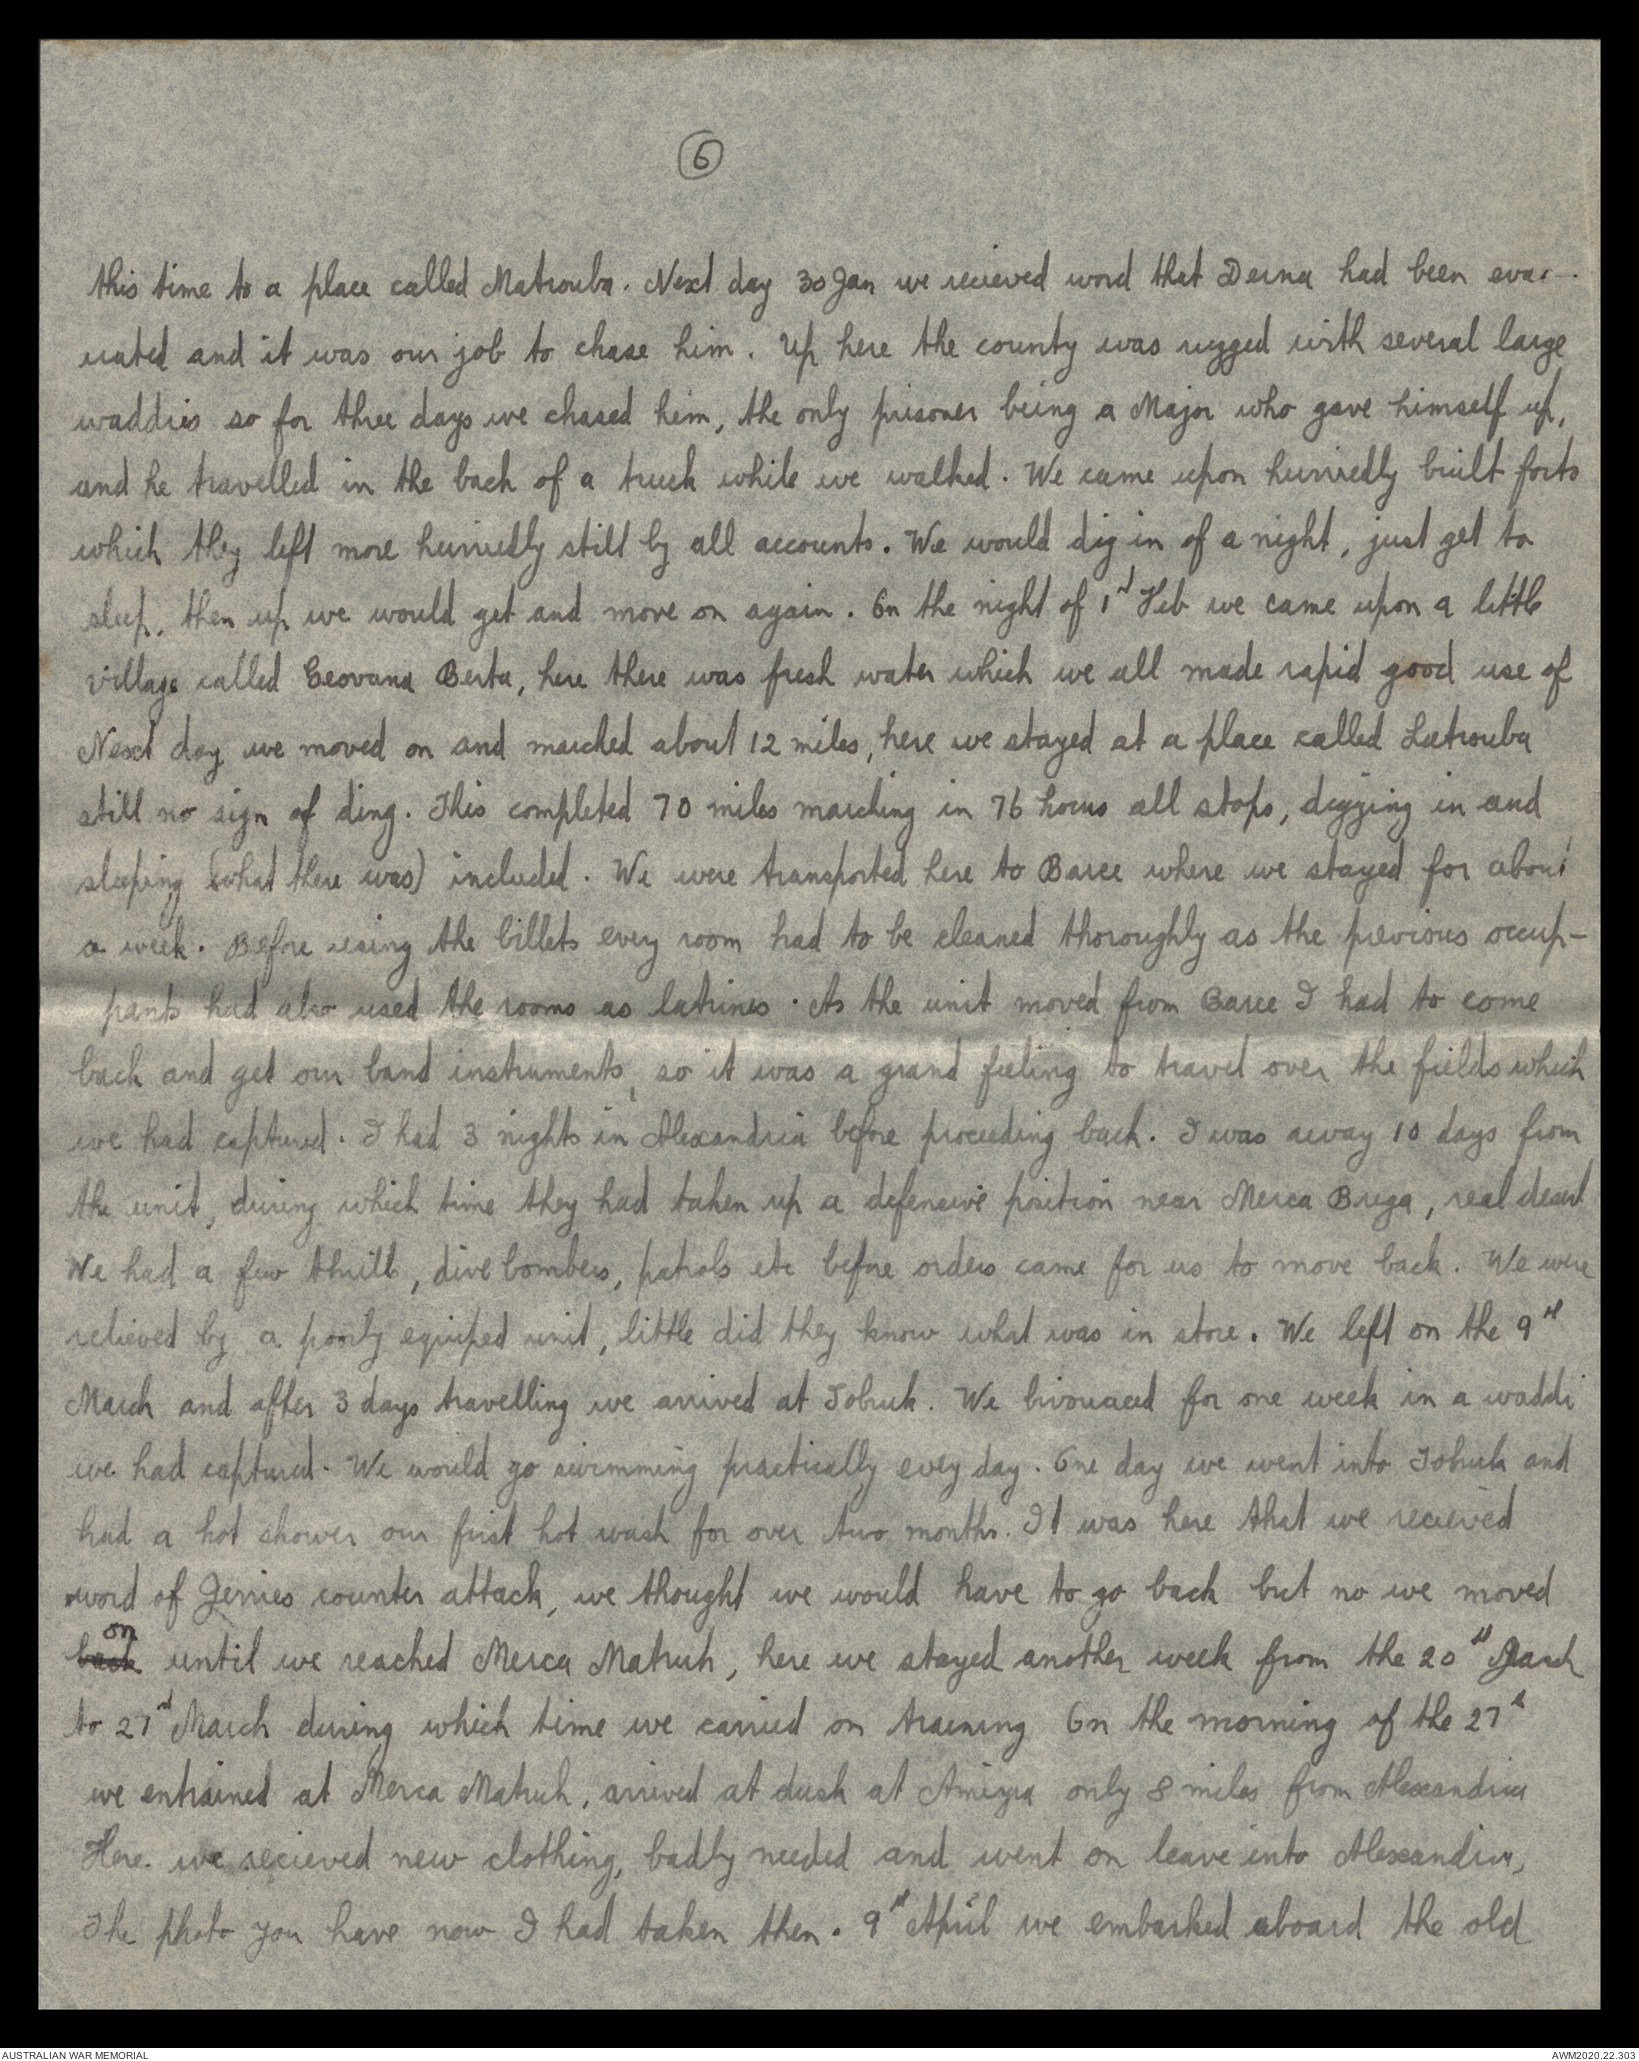 6
this time to a place called Matrouba. Next day 30 Jan we recieved word that Derna had been evac-
uated and it was our job to chase him. Up here the county was rugged with several large
waddies so for three days we chased him, the only prisoner being a Major who gave himself up,
and he travelled in the back of a truck while we walked. We came upon hurriedly built forts
which they left more hurriedly still by all accounts. We would dig in of a night, just get to
sleep, then up we would get and move on again. On the night of 1st Feb we came upon a little
village called Geovana Berta, here there was fresh water which we all made rapid good use of
Next day we moved on and marched about 12 miles, here we stayed at a place called Latrouba
still no sign of ding. This completed 70 miles marching in 76 hours all stops, digging in and
sleeping (what there was) included. We were transported here to Barce where we stayed for about
a week. Before using the billets every room had to be cleaned thoroughly as the previous occup-
pants had also used the rooms as latrines. As the unit moved from Barce I had to come
back and get our band instruments, so it was a grand feeling to travel over the fields which
we had captured. I had 3 nights in Alexandria before proceeding back. I was away 10 days from
the unit, during which time they had taken up a defensive position near Merca Brega, real desert
We had a few thrills, dive bombers, patrols etc before orders came for us to move back. We were
relieved by a poorly equiped unit, little did they know what was in store. We left on the 9th
March and after 3 days travelling we arrived at Tobruk. We bivouaced for one week in a waddi
we had captured. We would go swimming practically every day. One day we went into Tobruk and
had a hot shower our first hot wash for over two months. It was here that we recieved
word of Jerries counter attack, we thought we would have to go back but no we moved
on
back until we reached Merca Matruh, here we stayed another week from the 20th March
to 27th March during which time we carried on training On the morning of the 27th
we entrained at Merca Matruh, arrived at dusk at Amirya only 8 miles from Alexandria
Here we recieved new clothing, badly needed and went on leave into Alexandria,
The photo you have now I had taken then. 9th April we embarked aboard the old
AUSTRALIAN WAR MEMORIAL
AWM2020.22.303